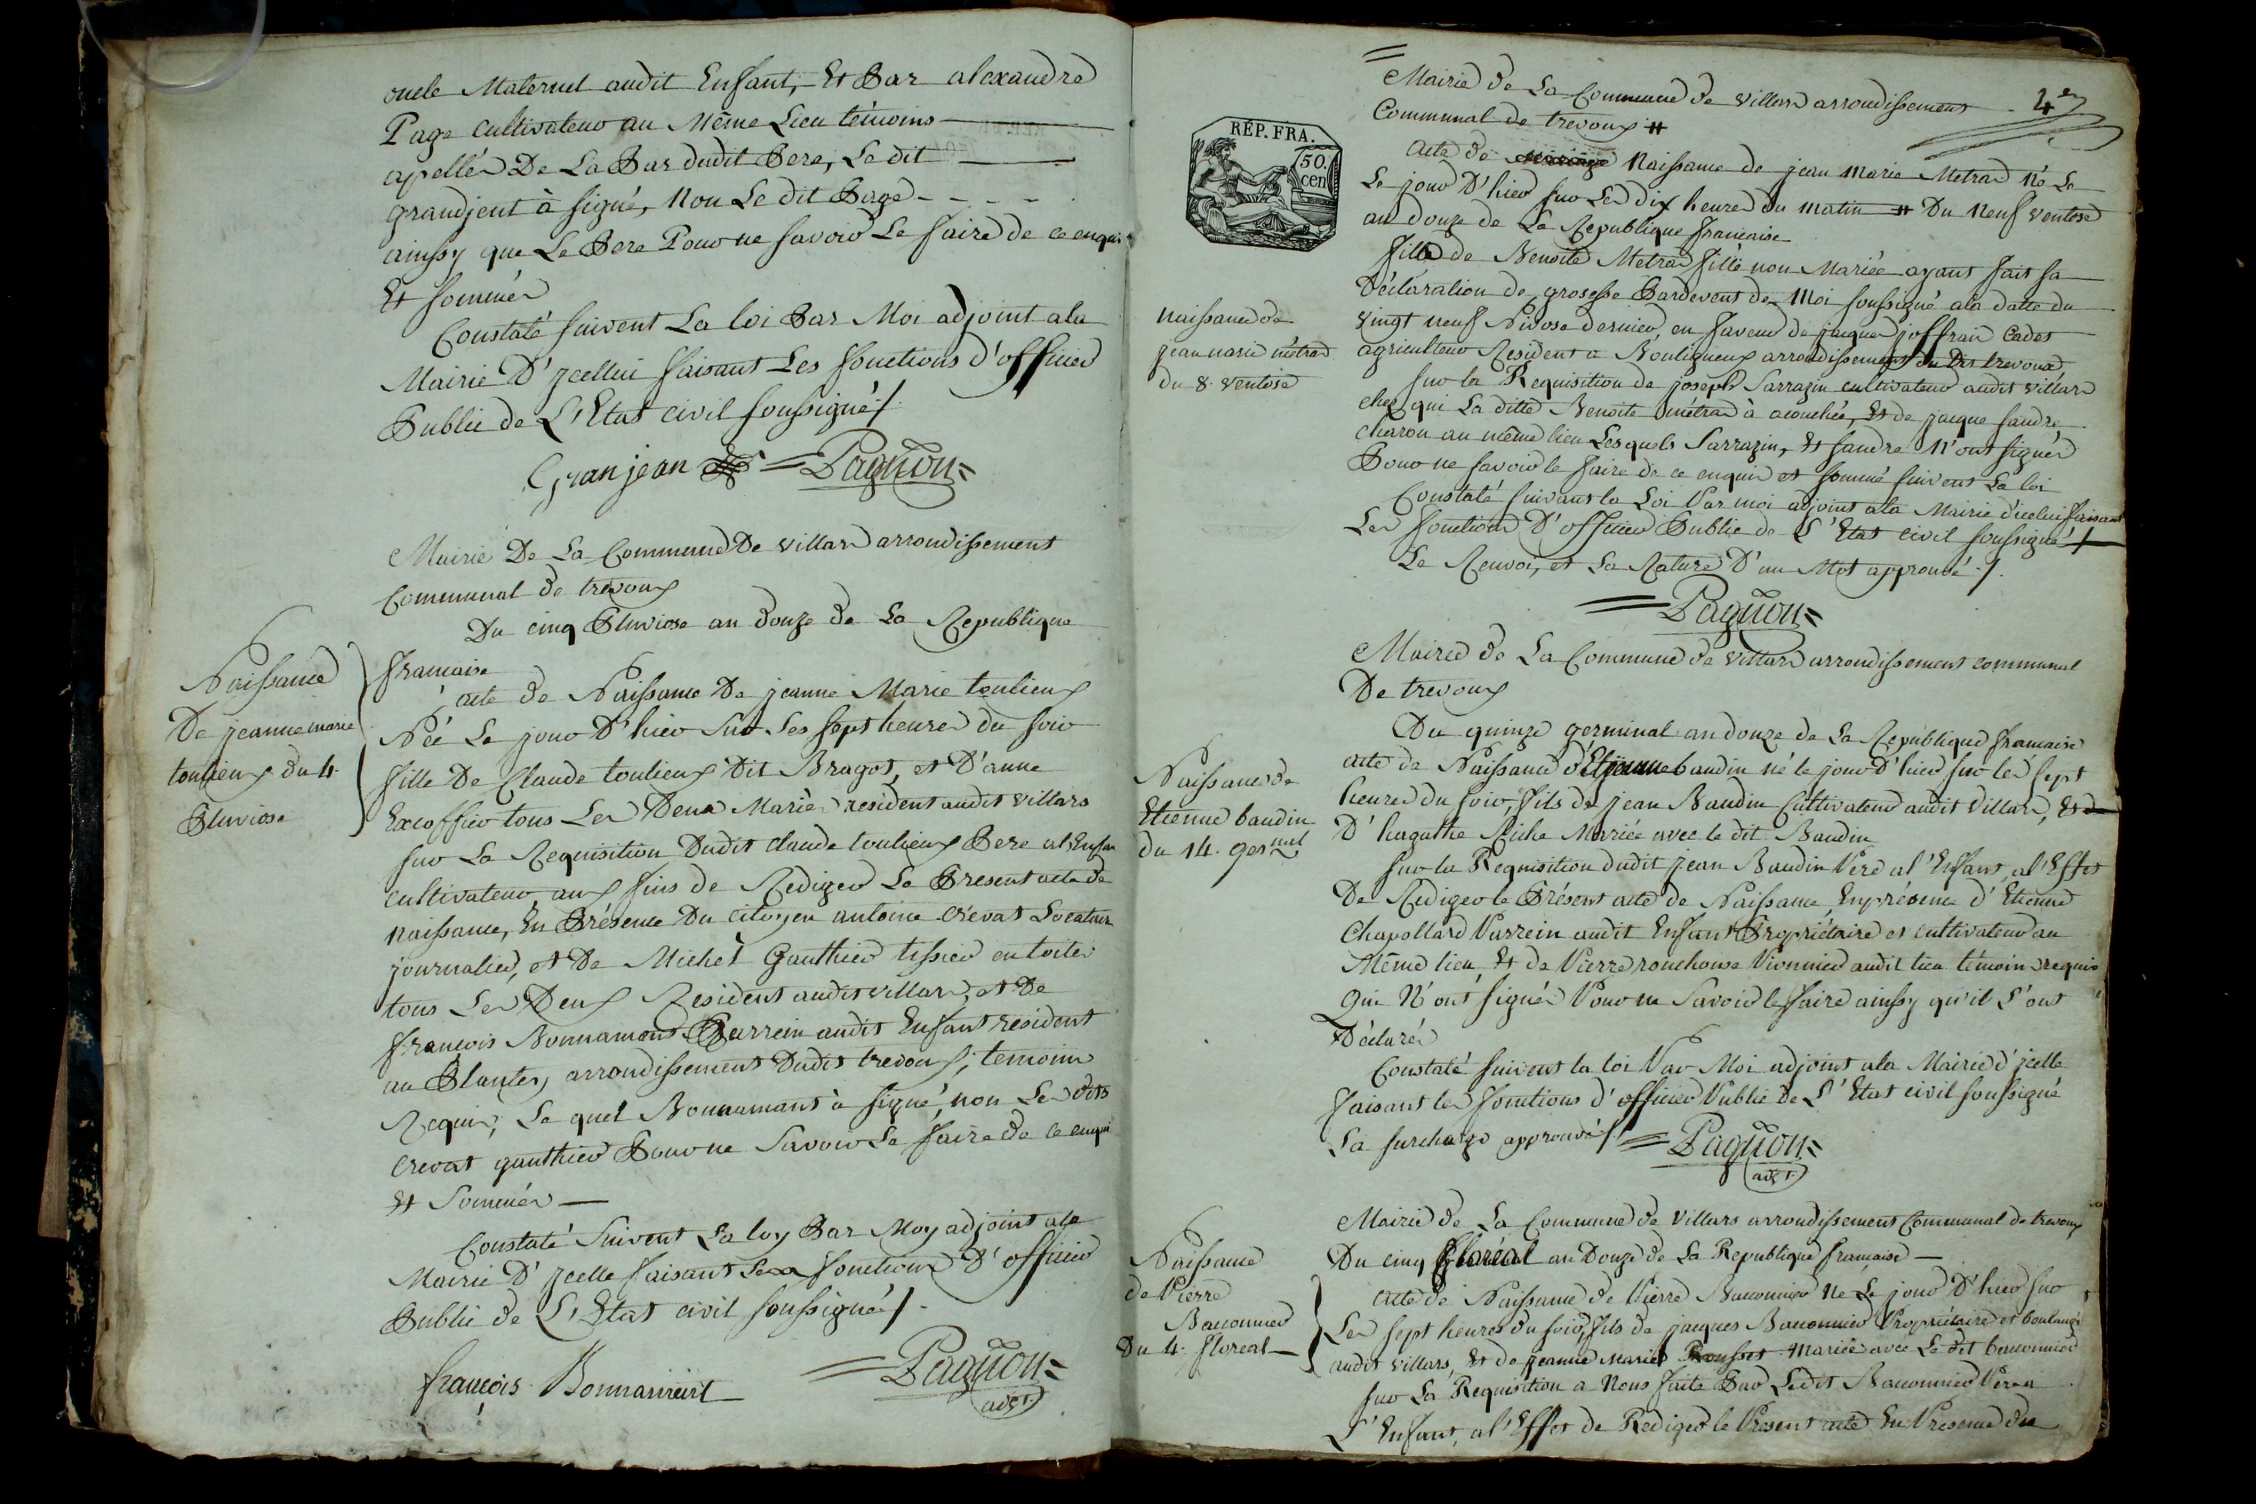 oncle Maternel audit Enfant, Et Par alexandre
Page cultivateur au Même Lieu témoins
apellés De La Par dudit Pere, Le dit
grandjent à signé, Non Le dit Page
ainssy que Le Pere Pour ne savoir Le faire de ce enquis
Et sommés
Constaté suivent La loi Par Moi adjoint ala
Mairie D'jcelluï faisant Les fonctions d'officier
Public de L'Etat civil soussigné /.
Granjean = Pagnon =
Mairie De La Commune De villars arrondissement
Communal de trevoux
Du cinq Pluviose an douze de La Republique
francaise
Naissance
De jeanne marie
toulieux du 4.
Pluviose
acte de Naissance De jeanne Marie toulieux
Née Le jour D'hier Sur Les sept heures du soir
fille De Claude toulieux Dit Bragot, et D'anne
Excoffier tous Les Deux Mariés resident audit villars
sur La Requisition Dudit claude toulieux Pere al'Enfan
cultivateur aux fins de Rediger Le Present acte de
naissance, En Présence Du citoyen antoine Crevat Locataire
journalier, et De Michel Gauthier tissier en toiles
tous Les Deux Resident audit villars, et De
françois Bonnamant Parrein audit Enfant resident
au Plantey arrondissement Dudit trevoux, temoins
Requis, Le quel Bonnamant à signé, non Les dits
Crevat gauthier Pour ne Savoir Le faire de ce enquis
Et Sommés
Constaté Suivent La loy Par Moy adjoint ala
Mairie D'jcelle faisant Les fonctions D'officier
Public de L'Etat civil soussigné /.
françois Bonnamant = Pagnon =
adjt
4e
Mairie de La Commune de villars arrondissement
Communal de trevoux #
RÉP. FRA.
50
cen
acte de Mariage Naissance de jean Marie Metras Né Le
Le jour D'hier sur Les dix heures du matin # Du Neuf ventose
an douze de La Republique francaise
naissance de
jean marie métras
du 8. ventose
fille de Benoite Metras fille non Mariée ayant fait sa
Déclaration de grosesse Pardevent de Moi soussigné ala datte du
vingt neuf Nivose dernier, en faveur de jacque joffrai Cadet
agriculteur Resident a Bouligneux arrondissement du Dit trevoux
sur la Requisition de joseph Sarrazin cultivateur audit villars
chez qui La ditte Benoite métras à acouchée, Et de jacque fandre
charon au même lieu Lesquels Sarrazin, Et fandre N'ont signés
Pour ne savoir le faire de ce enquis et sommé suivent La loi
Constaté suivant la Loi Par moi adjoint ala Mairie d'icelui faisant
Les fonctions D'officier Public de L'Etat civil soussigné /
Le Renvoi, et La Rature D'un Mot approuvé /.
= Pagnon =
Mairie de La Commune de villars arrondissement communal
De trevoux
Du quinze germinal an douze de La Republique francaise
Naissance de
Etienne baudin
du 14. gernal
acte de Naissance d'Etienne baudin né le jour d'hier sur les sept
heures du soir, fils de jean Baudin Cultivateur audit Villars, Et
D'hagathe Riche Mariée avec le dit Baudin
sur la Requisition dudit jean Baudin Pere al'Enfant, al'Effet
De Rediger le Présent acte de Naissance, En présence d'Etienne
Chapollard Parrein audit Enfant Propriétaire et cultivateur au
Même lieu, Et de Pierre ronchouse Vionnier audit lieu témoins requis
Qui N'ont signés Pour ne Savoir le faire ainssy qu'il L'ont
Déclarés
Constaté suivent la loi Par Moi adjoint ala Mairie d'jcelle
faisant les fonctions d'officier Public de L'Etat civil soussigné
La surcharge approuvé / = Pagnon =
adjt
Mairie de La Commune de Villars arrondissement Communal de trevoux
Du cinq floréal an Douze de La Republique francaise
Naissance
de Pierre
Bauonnier
Du 4. floreal
acte de Naissance de Pierre Bauonnier Né Le jour D'hier sur
Les sept heures du soir, fils de jacques Bauonnier Propriétaire et boulangé
audit villars, Et de jeanne Marie Mariée avec Le dit bauonnier
sur La Requisition a Nous faite Par Ledit Bauonnier Pere a
L'Enfant, al'Effet de Rediger le Present acte En Presence du